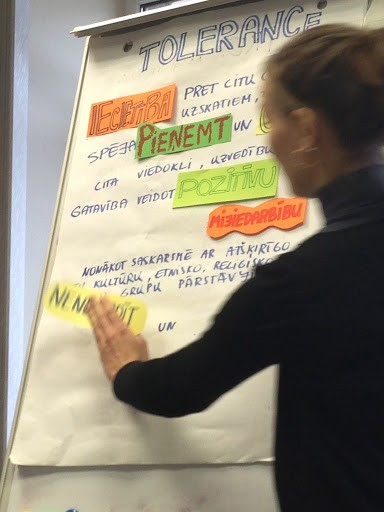 TOLERANCE
IECIETĪBA PRET CITU
UZSKATIEM,
SPĒJA PIEŅEMT UN
CITA VIEDOKLI, UZVEDĪBU
GATAVĪBA VEIDOT POZITĪVU
MIJIEDARBĪBU
NONĀKOT SASKARSMĒ AR ATŠĶIRĪGO
KULTŪRU, ETNISKO, RELIĢISKO
GRUPU
UN